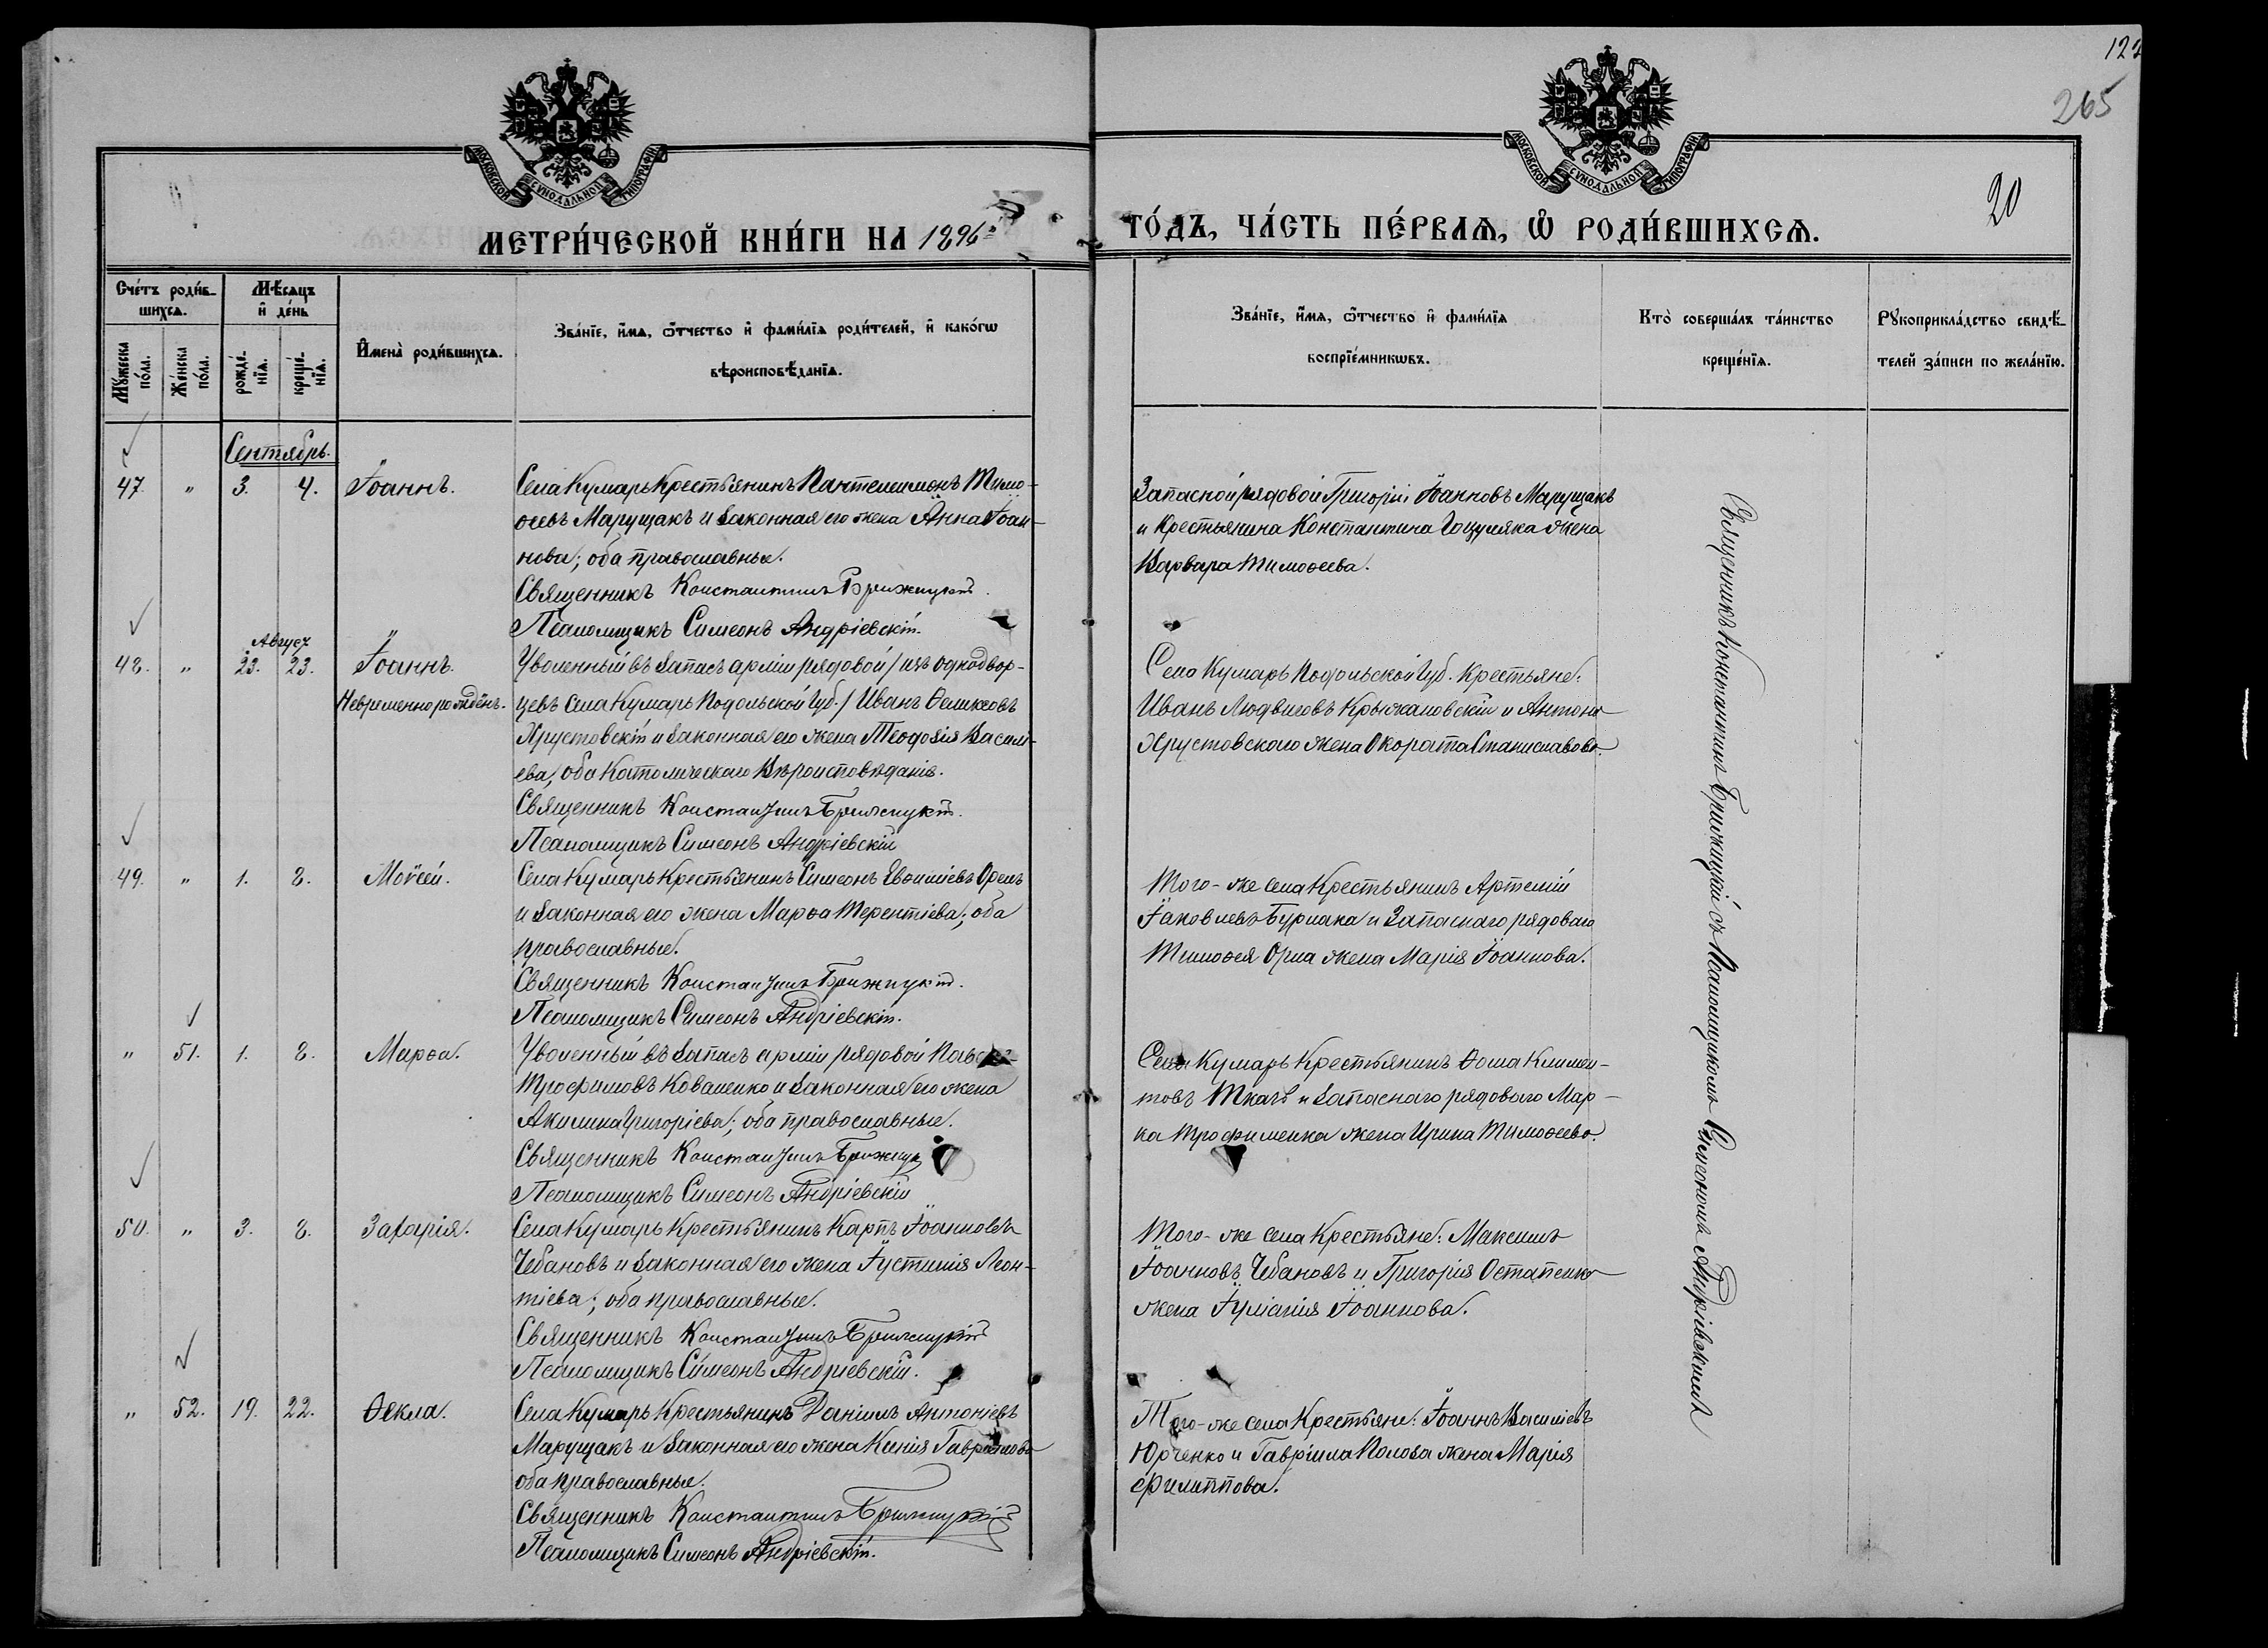 122
265
20
МОСКОВСКОЙ СѴНОДАЛЬНОЙ ТИПОГРАФІИ
МОСКОВСКОЙ СѴНОДАЛЬНОЙ ТИПОГРАФІИ
МЕТРИ́ЧЕСКОЙ КНИ́ГИ НА 1896й
ГО́ДЪ, ЧА́СТЬ ПЕ́РВАѦ, Ѿ РОДИ́ВШИХСѦ.
Сче́тъ роди́в-
шихсѧ.
Мꙋжеска по́ла.
Же́нска по́ла.
Мѣ́сѧцъ
и҆ де́нь
рожде́-
нїѧ.
креще́-
нїѧ.
И҆мена̀ роди́вшихсѧ.
Зва́нїе, и҆́мѧ, ѻ҆́тчество и҆ фами́лїѧ роди́телей, и҆ како́гѡ
вѣроисповѣ́данїѧ.
Зва́нїе, и҆́мѧ, ѻ҆́тчество и҆ фами́лїѧ
воспрїе́мникѡвъ.
Кто̀ соверша́лъ та́инство
креще́нїѧ.
Рꙋкоприкла́дство свидѣ́-
телей за́писи по жела́нїю.
Сентябрь.
47. " 3. 4. Іоаннъ.
Села Кумарь Крестьянинъ Пантелеимонъ Тимо-
ѳеевъ Марущакъ и законная его жена Анна Іоан-
нова; оба православные.
Священникъ Константинъ Брижицкій.
Псаломщикъ Симеонъ Андріевскій.
Запасной рядовой Григорій Іоанновъ Марущакъ
и Крестьянина Константина Гоцуляка жена
Варвара Тимоѳеева.
Август
48. " 23. 23. Іоаннъ.
Невременнорожденъ.
Уволенный въ запасъ арміи рядовой /изъ однодвор-
цевъ села Кумарь Подольской Губ./ Иванъ Феликсовъ
Хрустовскій и законная его жена Теодозія Василь-
ева, оба Католическаго Вѣроисповѣданія.
Священникъ Константинъ Брижицкій.
Псаломщикъ Симеонъ Андріевскій
Село Кумарь Подольской Губ. Крестьяне:
Иванъ Людвиговъ Крыжановскій и Антона
Хрустовскаго жена Станиславова.
49. " 1. 8. Моѵсей.
Села Кумарь Крестьянинъ Симеонъ Евѳиміевъ Орелъ
и законная его жена Марѳа Терентіева; оба
православные.
Священникъ Константинъ Брижицкій.
Псаломщикъ Симеонъ Андріевскій.
Того-же села Крестьянинъ Артемій
Іаковлевъ Бурлака и Запаснаго рядоваго
Тимоѳея Орла жена Марія Іоаннова.
" 51. 1. 8. Марѳа.
Уволенный въ запасъ арміи рядовой
Трофимовъ Коваленко и законная его жена
Акилина Григоріева; оба православные.
Священникъ Константинъ Брижицк
Псаломщикъ Симеонъ Андріевскій
Села Кумарь Крестьянинъ Ѳома Климен-
товъ Ткачъ и запаснаго рядоваго Мар-
ка Трофименка жена Ирина Тимоѳеева.
50. " 3. 8. Захарія.
Села Кумарь Крестьянинъ Карпъ Іоанновъ
Чебановъ и законная его жена Іустинія Леон-
тіева; оба православные.
Священникъ Константинъ Брижицкій
Псаломщикъ Симеонъ Андріевскій.
Того-же села Крестьяне: Максимъ
Іоанновъ Чебановъ и Григорія Остапенко
жена Іуліанія Іоаннова.
" 52. 19. 22. Ѳекла.
Села Кумарь Крестьянинъ Даніилъ Антоніевъ
Марущакъ и законная его жена Ксенія Гавріилова
оба православные.
Священникъ Константинъ Брижицкій
Псаломщикъ Симеонъ Андріевскій.
Того-же села Крестьяне: Іоаннъ Василіевъ
Юрченко и Гавріила Попова жена Марія
Филиппова.
Священникъ Константинъ Брижицкій съ Псаломщикомъ Симеономъ Андріевскимъ